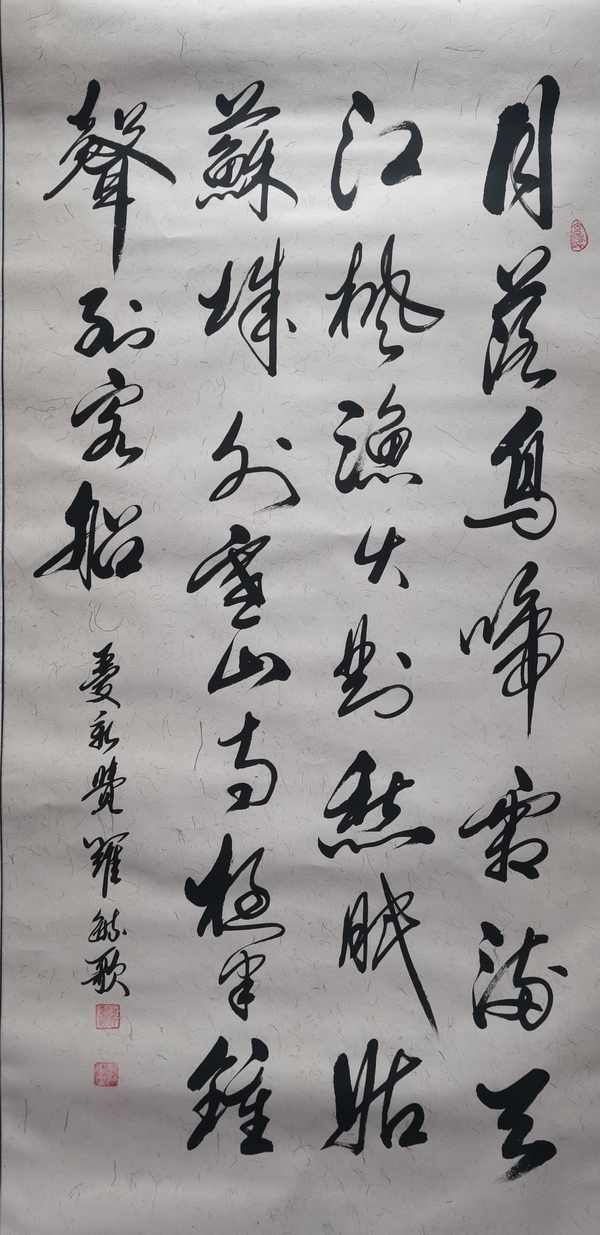 月落烏啼霜滿天
江楓漁火對愁眠姑
蘇城外寒山寺夜半鍾
聲到客船
愛新覺羅毓歌